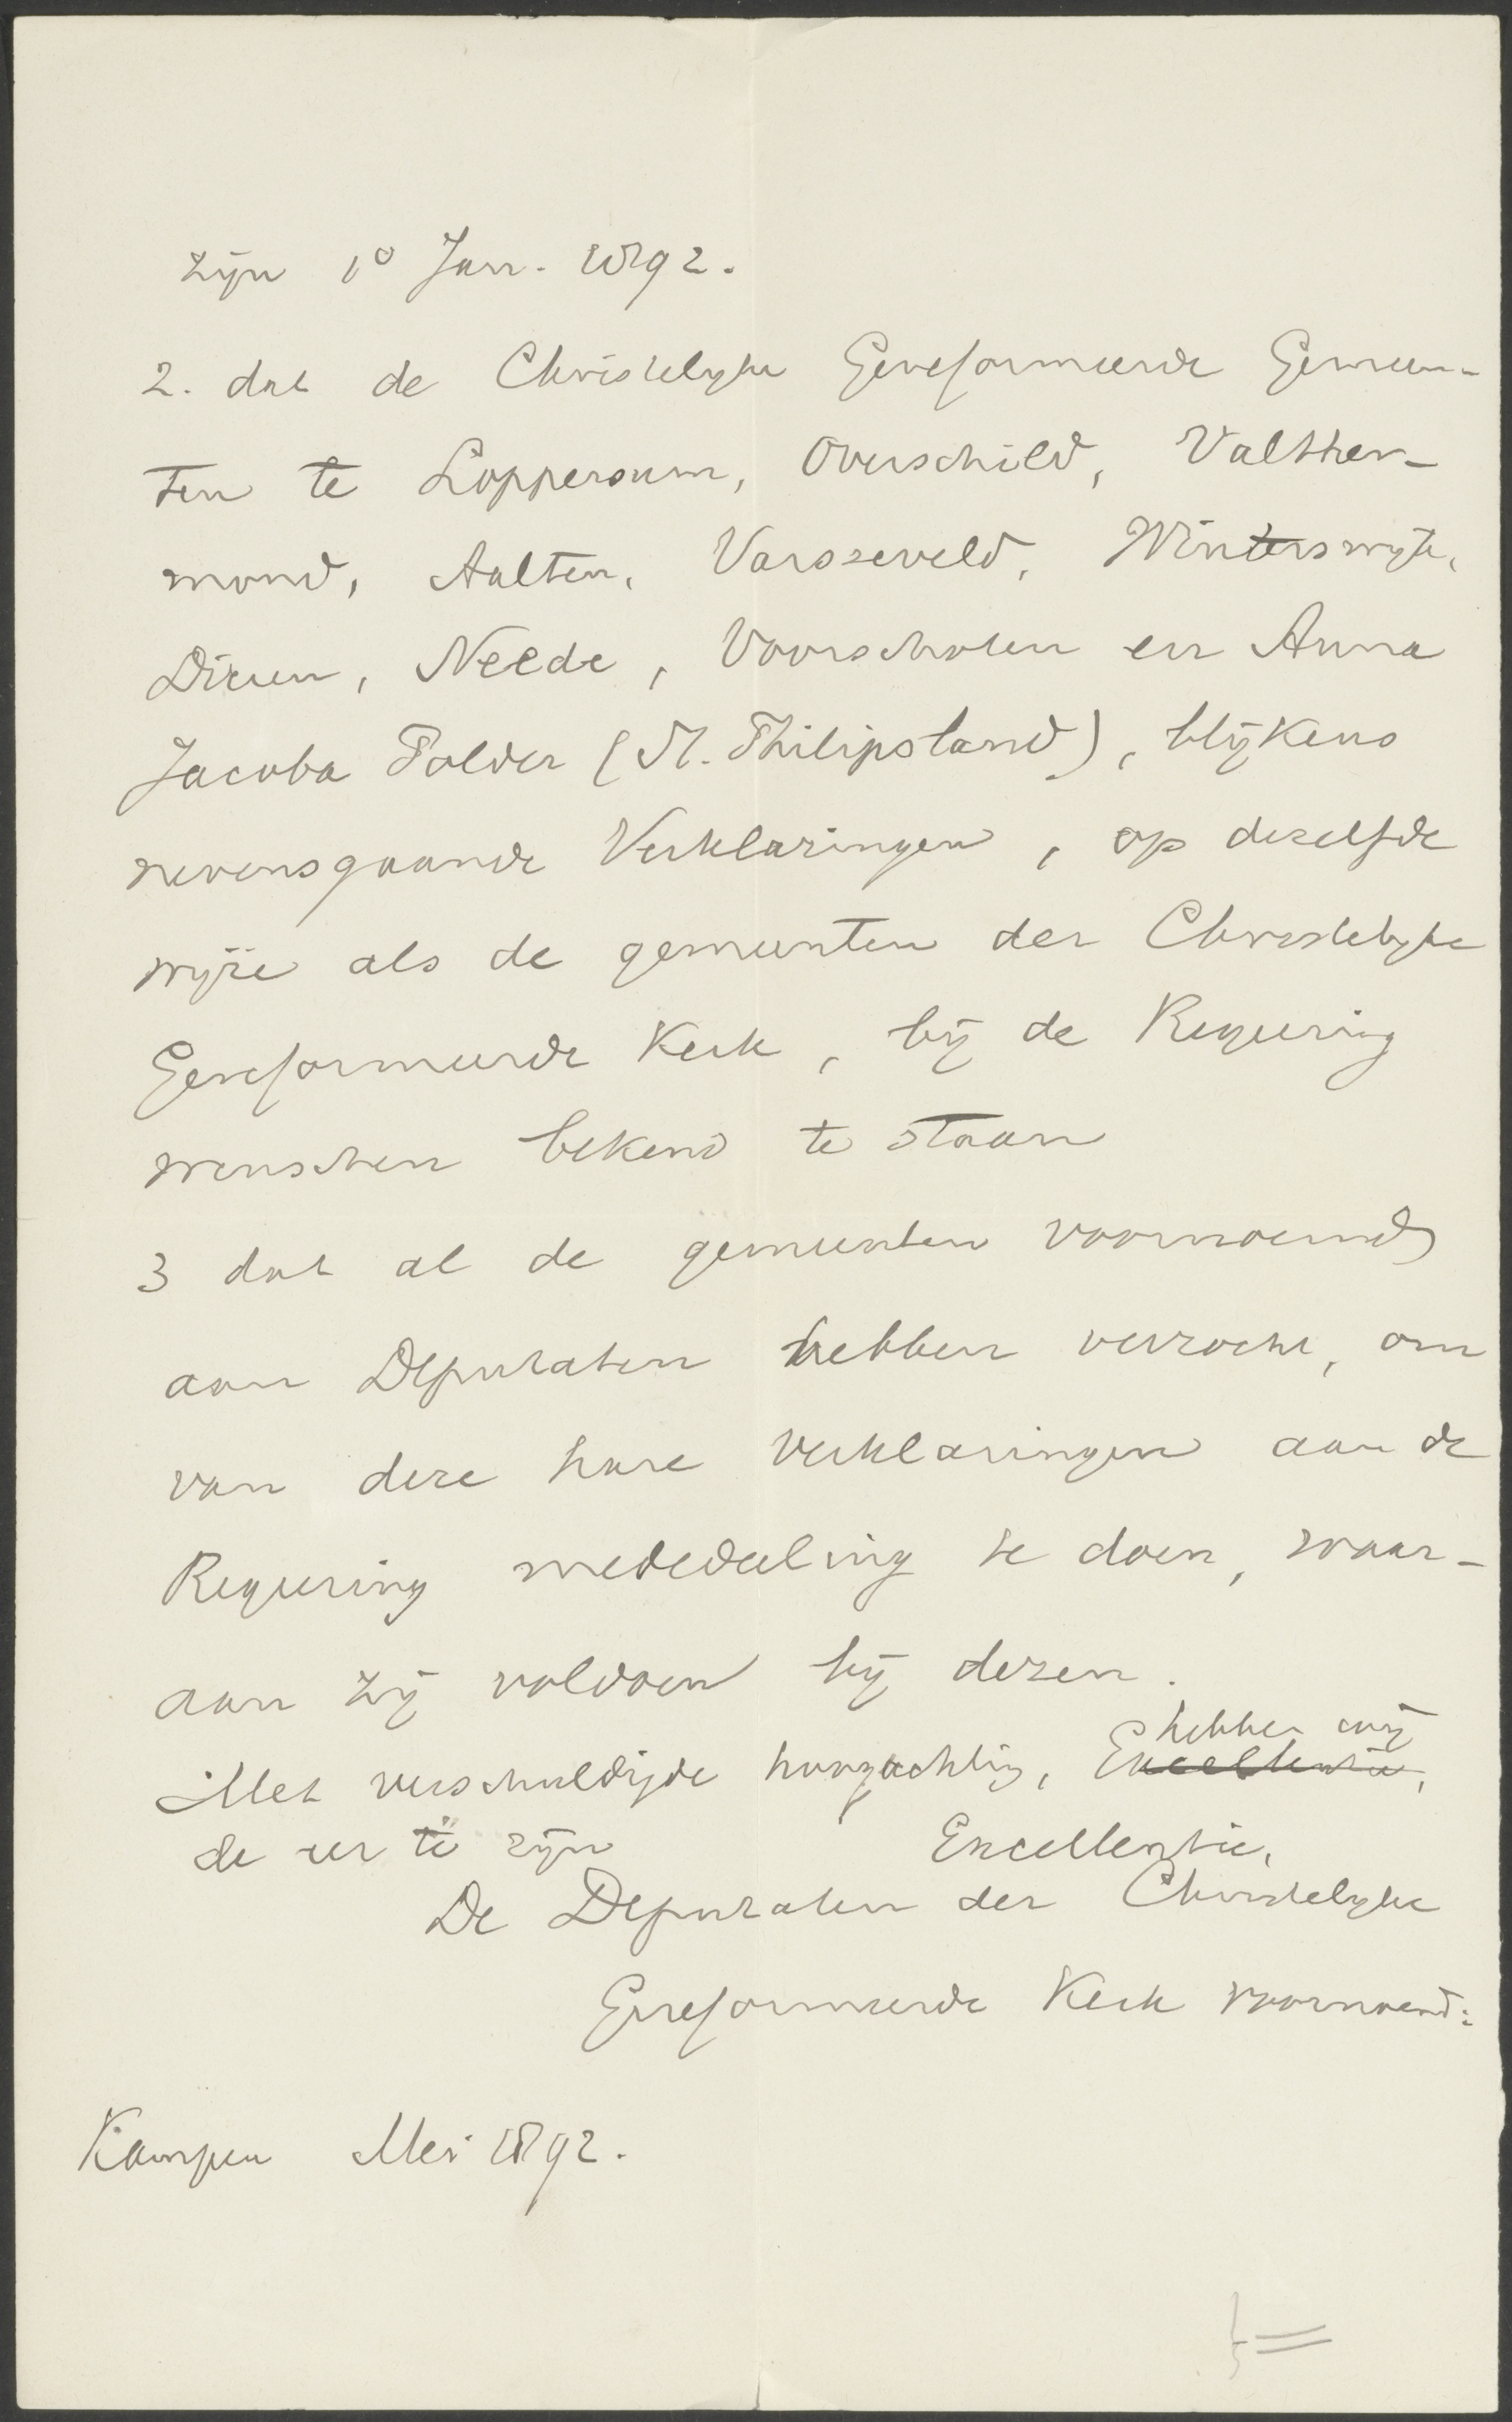 zijn 1º Jan. 1892.
2. dat de Christelijke Gereformeerde Gemeen-
ten te Loppersum, Overschild, Valther-
mond, Aalten, Varsseveld, Winterswijk,
Dieren, Neede, Voorschoten en Anna
Jacoba Polder (St. Philipsland), blijkens
nevensgaande Verklaringen, op dezelfde
wijze als de gemeenten der Christelijke
Gereformeerde Kerk, bij de Regeering
wenschen bekend te staan
3 dat al de gemeenten voornoemd
aan Deputaten hebben verzocht, om
van deze hare verklaringen aan de
Regeering mededeeling te doen, waar-
aan zij voldoen bij dezen.
hebben wij
Met verschuldigde hoogachting, Excellentie,
de eer te zijn Excellentie,
De Deputaten der Christelijke
Gereformeerde Kerk voornoemd:
Kampen Mei 1892.